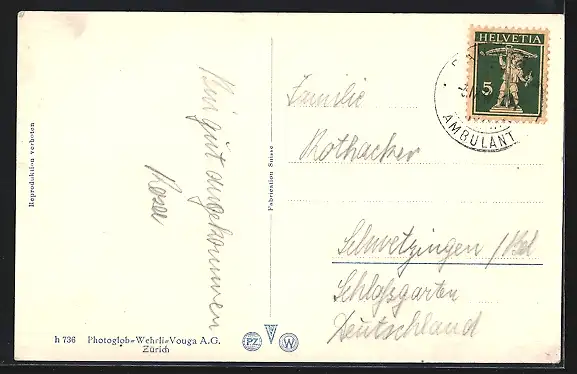 Reproduktion verboten
Bin gut angekommen
Rosa
h 736 Photoglob-Wehrli-Vouga A.G.
Zürich
Fabrication Suisse
PZ
W
HELVETIA
5
AMBULANT
Familie
Rothacker
Schwetzingen / Bd
Schloßgarten
Deutschland